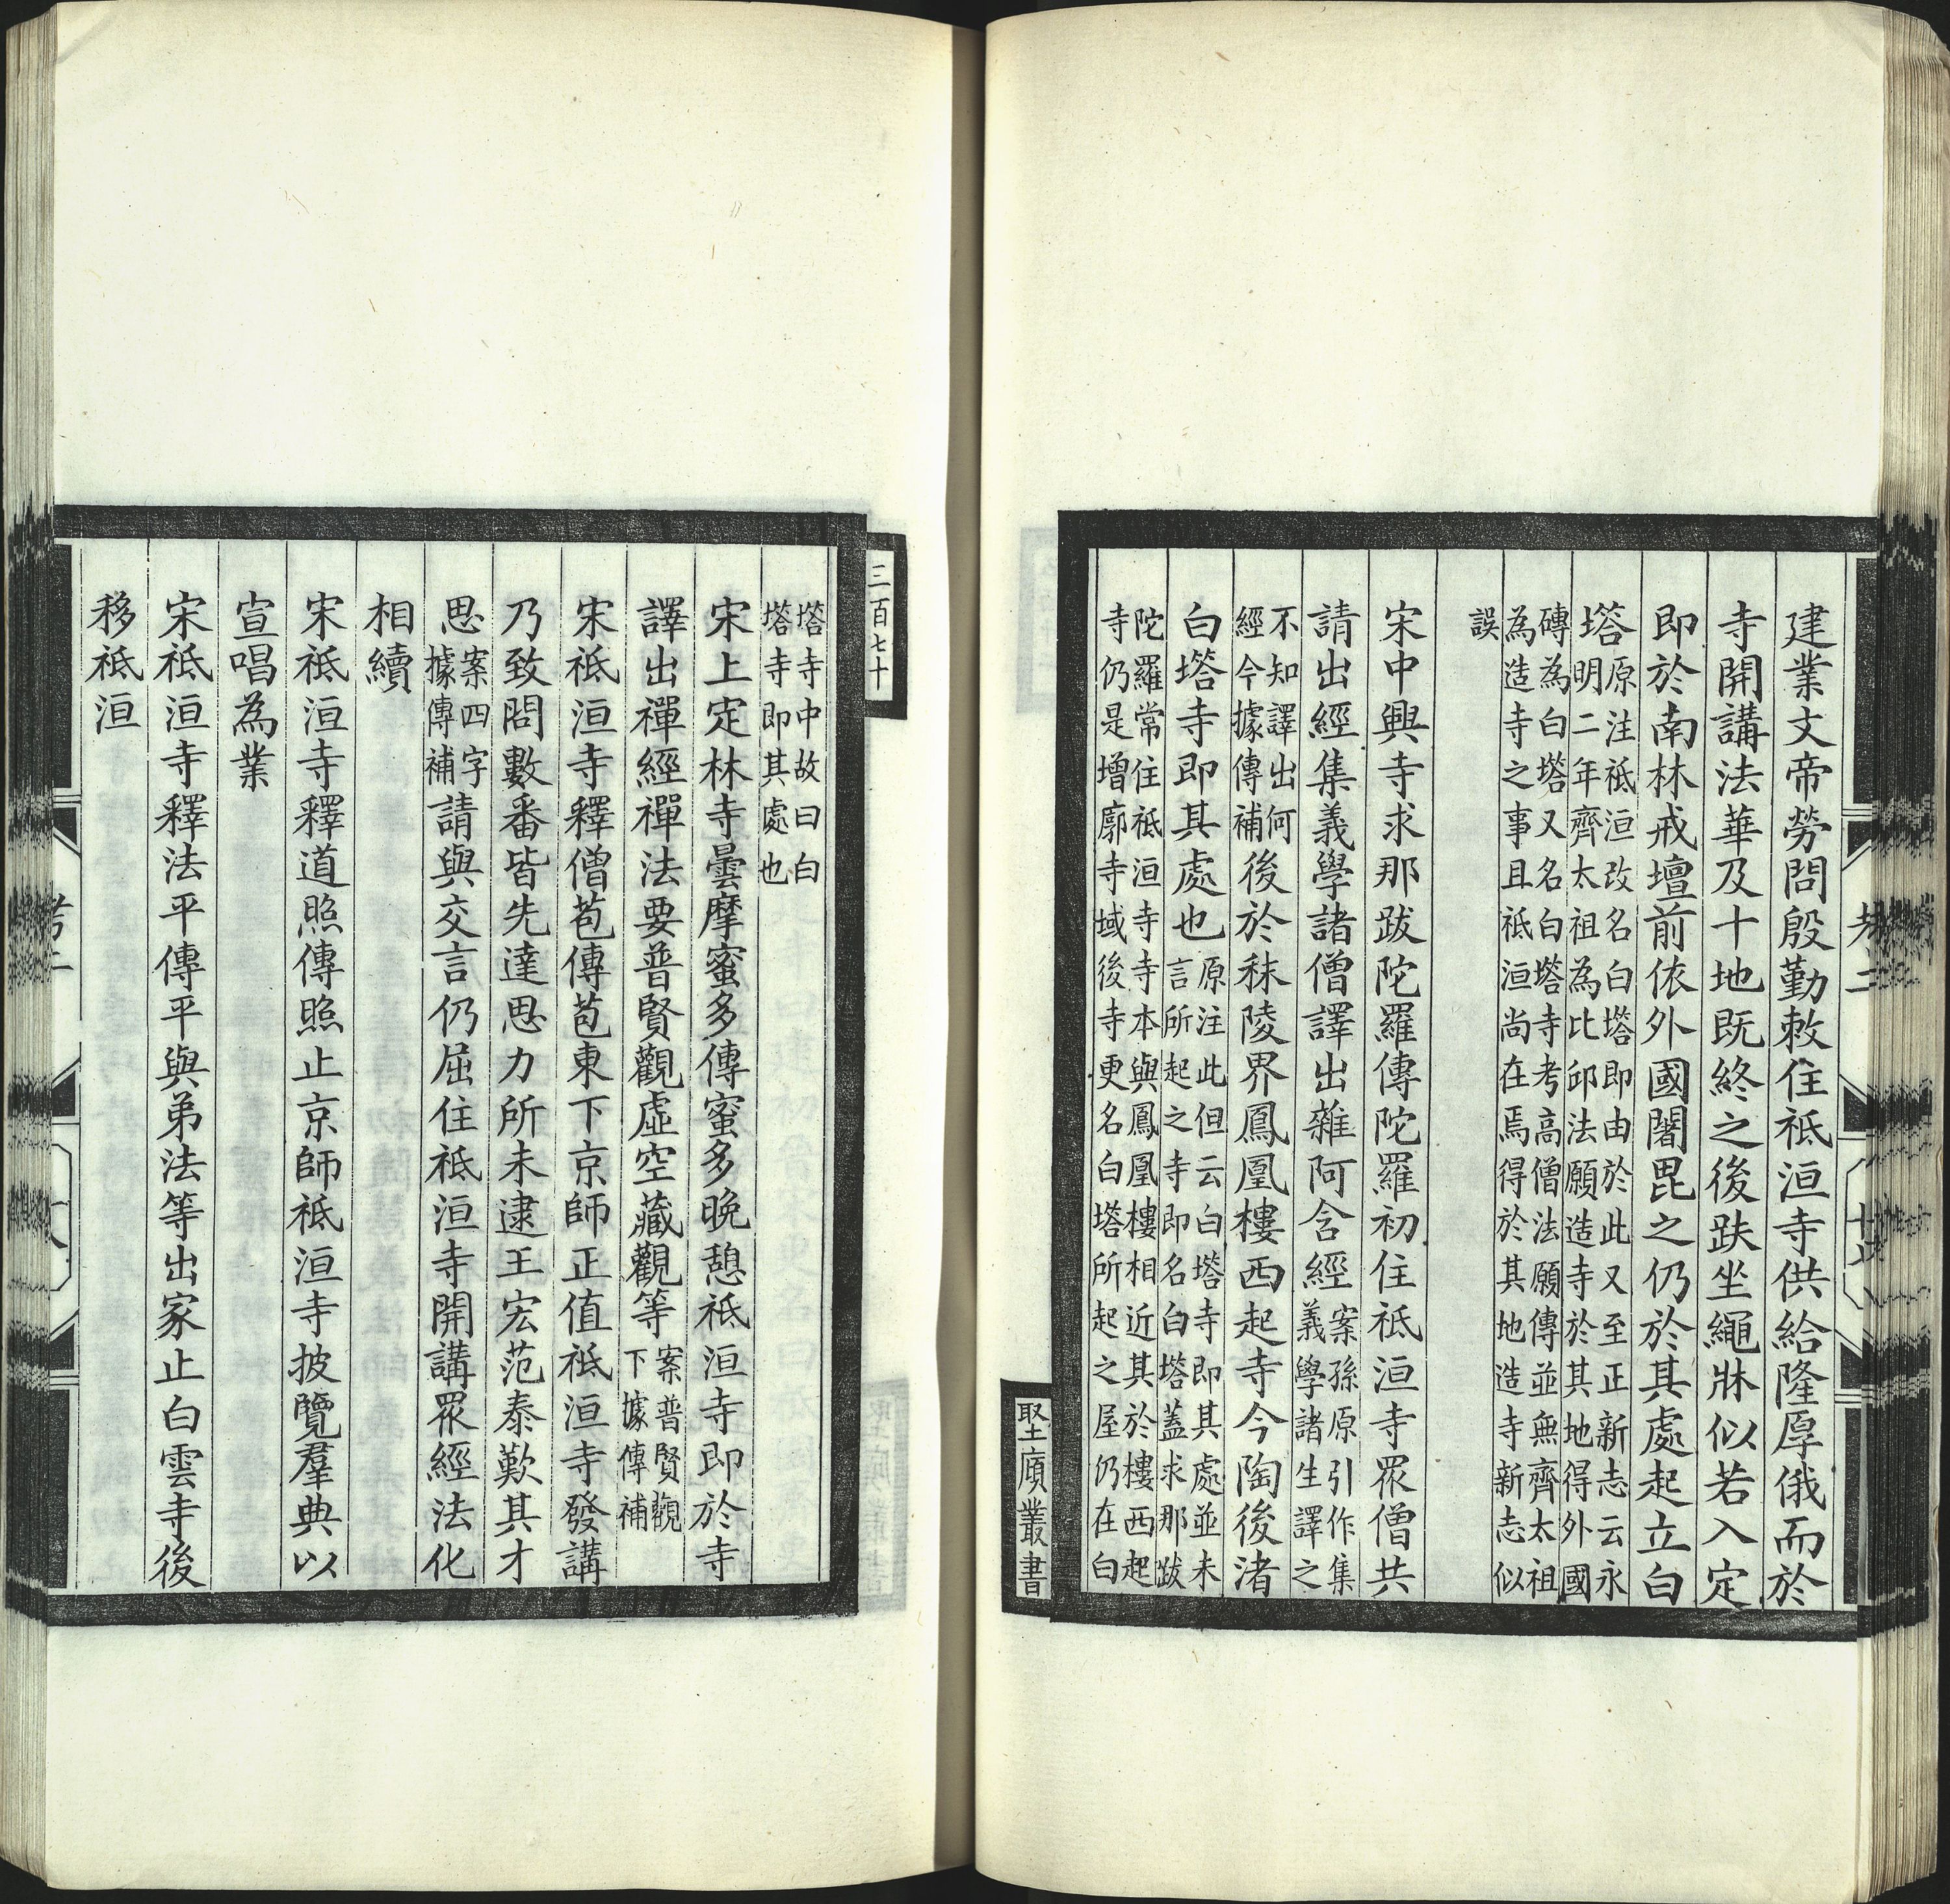 建業文帝勞問殷勤敕住祇洹寺供給隆厚俄而於
寺開講法華及十地既終之後趺坐繩牀似若入定
即於南林戒壇前依外國闍毘之仍於其處起立白
塔
原注祇洹改名白塔即由於此又至正新志云永
明二年齊太祖為比邱法願造寺於其地得外國
磚為白塔又名白塔寺考高僧法願傳並無齊太祖
為造寺之事且祇洹尚在焉得於其地造寺新志似
誤
宋中興寺求那跋陀羅傳陀羅初住祇洹寺眾僧共
請出經集義學諸僧譯出雜阿含經
案孫原引作集
義學諸生譯之
不知譯出何
經今據傳補
後於秣陵界鳳凰樓西起寺今陶後渚
白塔寺即其處也
原注此但云白塔寺即其處並未
言所起之寺即名白塔蓋求那跋
陀羅常住祇洹寺寺本與鳳凰樓相近其於樓西起
寺仍是增廓寺域後寺更名白塔所起之屋仍在白
塔寺中故曰白
塔寺即其處也
宋上定林寺曇摩蜜多傳蜜多晚憩祇洹寺即於寺
譯出禪經禪法要普賢觀虛空藏觀等
案普賢觀
下據傳補
宋祇洹寺釋僧苞傳苞東下京師正值祇洹寺發講
乃致問數番皆先達思力所未逮王宏范泰歎其才
思
案四字
據傳補
請與交言仍屈住祇洹寺開講眾經法化
相續
宋祇洹寺釋道照傳照止京師祇洹寺披覽羣典以
宣唱為業
宋祇洹寺釋法平傳平與弟法等出家止白雲寺後
移祇洹
三百七十
堅廎叢書
考二